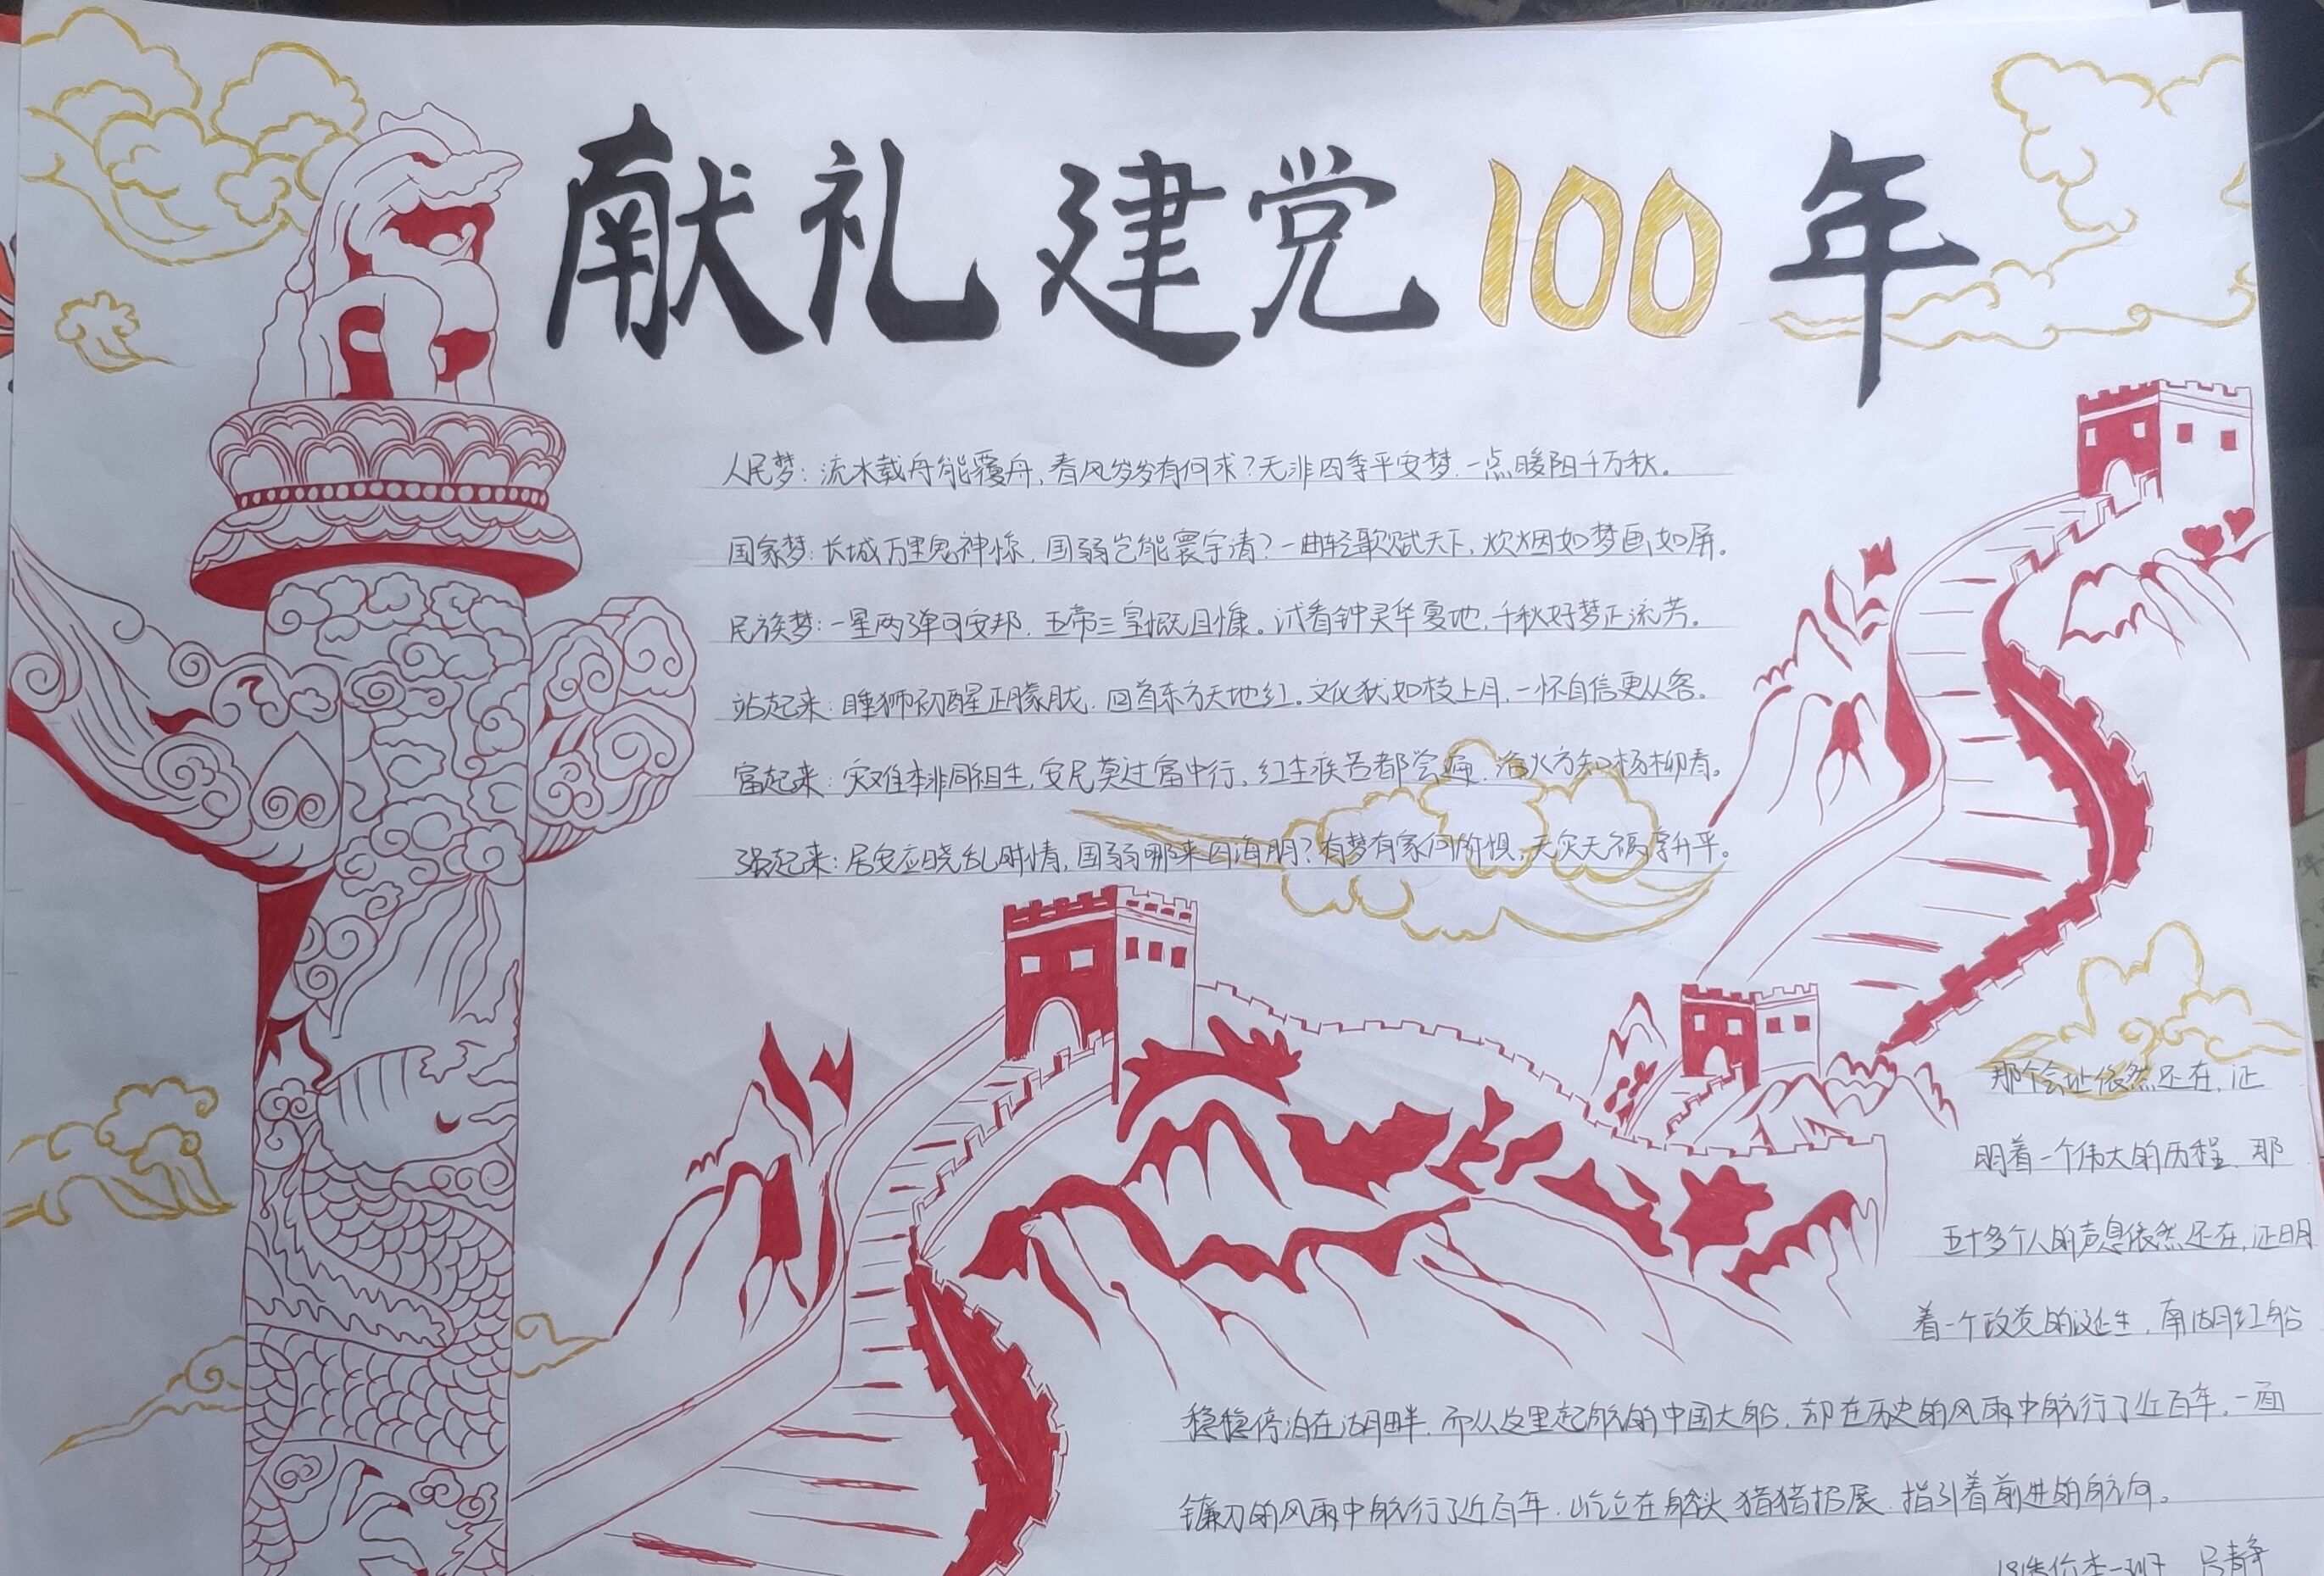 献礼建党100年
人民梦：流水载舟能覆舟，春风岁岁有何求？无非四季平安梦，一点暖阳千万秋。
国家梦：长城万里鬼神惊，国弱岂能寰宇清？一曲轻歌赋天下，炊烟如梦画如屏。
民族梦：一星两弹可安邦，五帝三皇慨且慷。试看钟灵华夏地，千秋好梦正流芳。
站起来：睡狮初醒正朦胧，回首东方天地红。文化犹如枝上月，一怀自信更从容。
富起来：灾难本非同祖生，安民莫过富中行，红尘疾苦都尝遍，浴火方知杨柳春。
强起来：居安应晓乱时情，国弱哪来四海朋？有梦有家何所惧，天灾天祸享升平。
那个会址依然还在，证
明着一个伟大的历程，那
五十多个人的声息依然还在，证明
着一个政党的诞生，南湖红船
稳稳停泊在湖畔，而从这里起航的中国大船，却在历史的风雨中航行了近百年，一面
镰刀的风雨中航行了近百年，屹立在船头猎猎招展，指引着前进的航向。
造价本一班 吕静